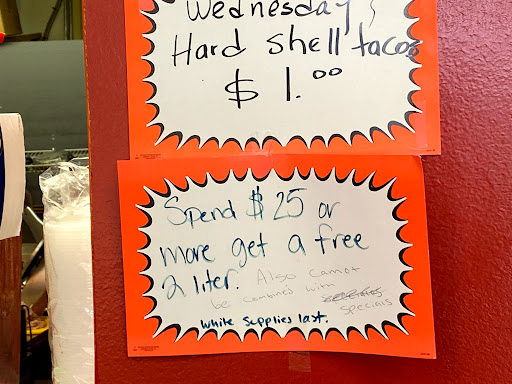 Wednesday's
Hard Shell tacos
$ 1.00
Spend $25 or
more get a free
2 liter. Also Cannot
be combined with
specials
White Supplies last.